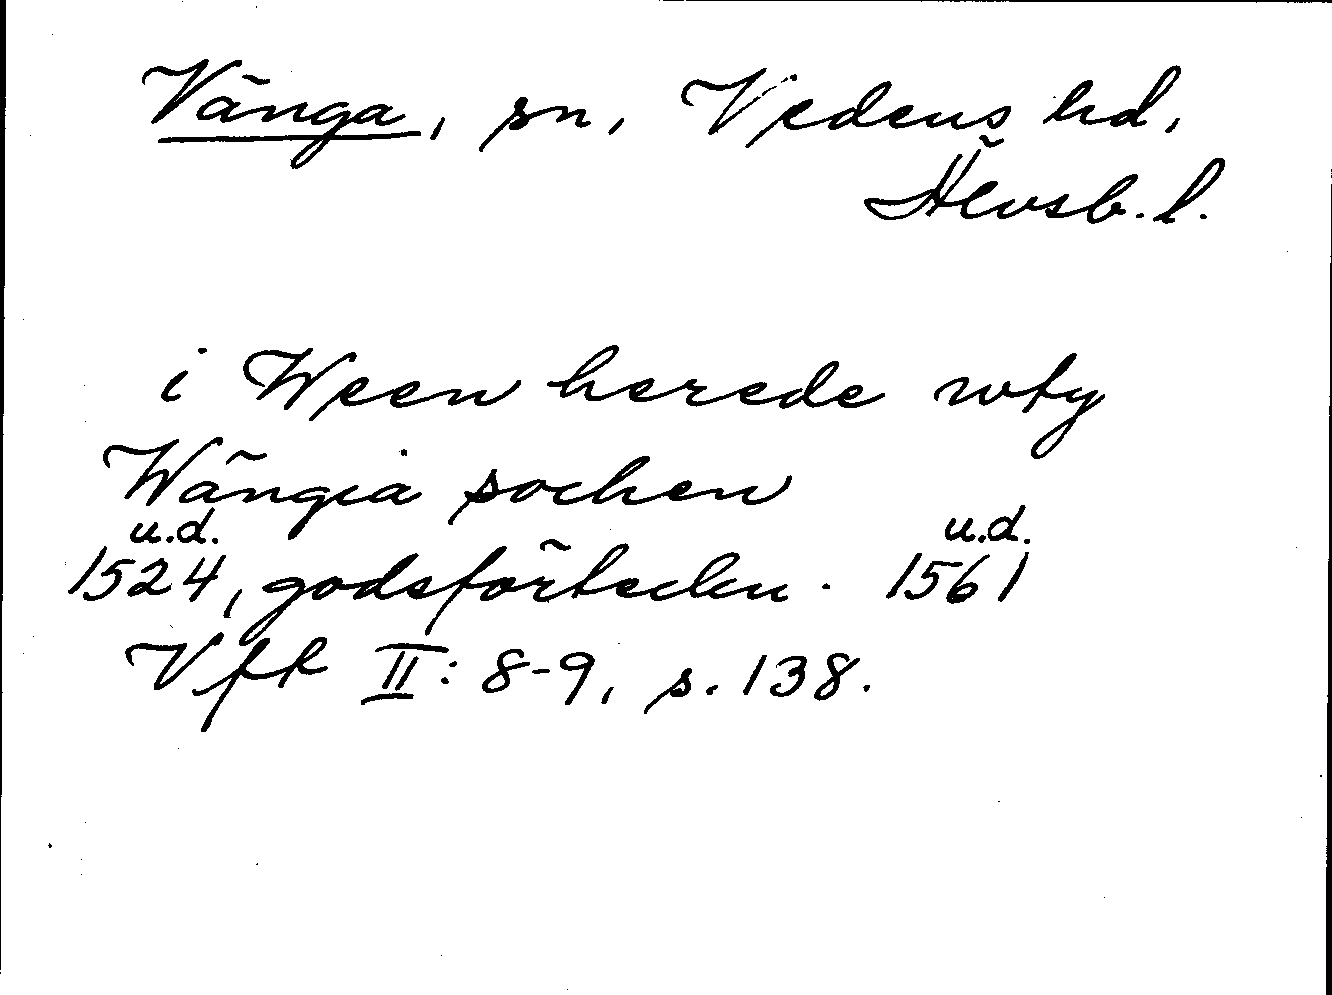 Vänga, sn, Vedens hd,
Älvsb. l.
i Ween herede wty
Wängia sochen
u.d. u.d.
1524, godsförteckn. 1561
Vfk II: 8-9, s. 138.